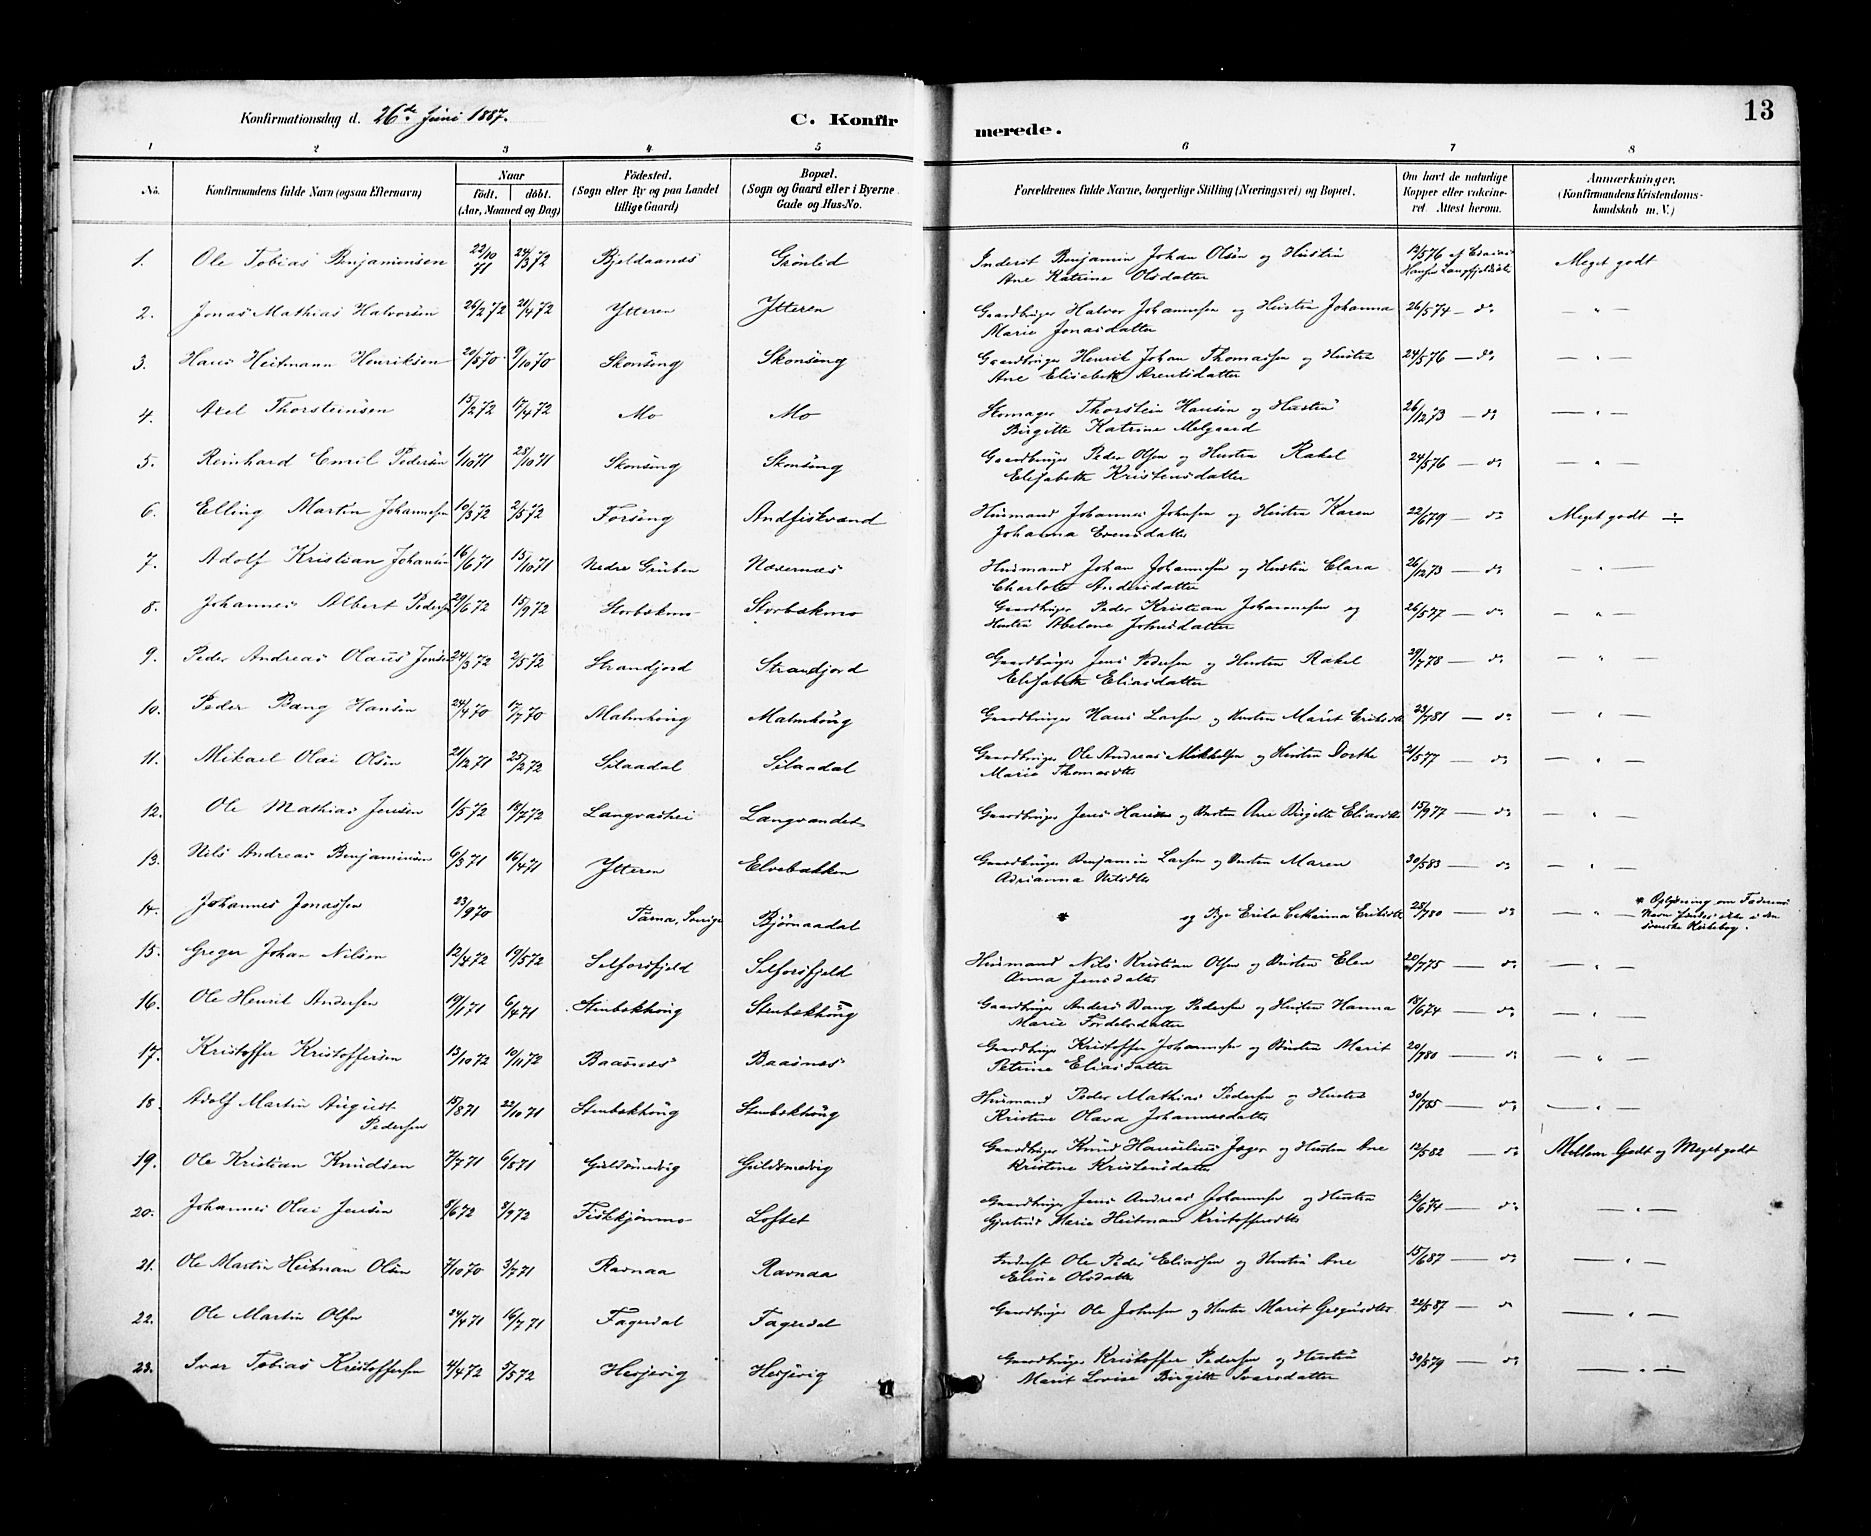 Konfirmationsdag d. 26de Juni 1887.
C. Konfirmerede.
13
1 2 3 4 5 6 7 8
No. Konfirmandens fulde Navn (ogsaa Efternavn) Naar født. døbt. (Aar, Maaned og Dag) Fødested. (Sogn eller By og paa Landet tillige Gaard) Bopæl. (Sogn og Gaard eller i Byerne Gade og Hus-No. Forældrenes fulde Navne, borgerlige Stilling (Næringsvei) og Bopæl. Om havt de naturlige Kopper eller vakcineret. Attest herom. Anmærkninger. (Konfirmandens Kristendomskundskab m. V.)
1. Ole Tobias Benjaminsen 22/10 71 24/3 72 Bjeldaanes Grønlid Inderst Benjamin Johan Olsen og Hustru 12/5 76 af Esaias
Ane Katrine Olsdatter Hansen Langfjeldlie Meget godt
2. Jonas Mathias Halvorsen 26/2 72 21/4 72 Ytteren Ytteren Gaardbruger Halvor Johannesen og Hustru Johanna 26/5 74 — do — " —
Marie Jonasdatter
3. Hans Heitmann Henriksen 20/8 70 9/10 70 Skonseng Skonseng Gaardbruger Henrik Johan Thomassen og Hustru 24/5 76 — do — " —
Ane Elisabeth Arentsdatter
4. Axel Thorsteinsen 15/2 72 17/4 72 Mo Mo Skomager Thorstein Hansen og Hustru 26/12 73 — do — " —
Birgitte Katrine Melgaard
5. Reinhard Emil Pedersen 1/10 71 28/10 71 Skonseng Skonseng Gaardbruger Peder Olsen og Hustru Rakel 24/5 76 — do — " —
Elisabeth Kristensdatter
6. Elling Martin Johannesen 10/3 72 2/5 72 Forseng Andfiskvand Husmand Johannes Johnsen og Hustru Karen 22/6 79 — do Meget godt ÷
Johanna Evensdatter
7. Adolf Kristian Johansen 16/6 71 15/10 71 Nedre Gruben Næsernæs Husmand Johan Johannesen og Hustru Clara 26/12 73 — do — " —
Charlote Andersdatter
8. Johannes Albert Pedersen 29/6 72 15/9 72 Storbækmo Storbækmo Gaardbruger Peder Kristian Johannesen og 26/5 77 — do — " —
Hustru Abelone Johnsdatter
9. Peder Andreas Olaus Jensen 24/3 72 2/5 72 Strandjord Strandjord Gaardbruger Jens Pedersen og Hustru Rakel 29/7 78 — do — " —
Elisabeth Eliasdatter
10. Peder Bang Hansen 24/4 70 17/7 70 Malmhøug Malmhøug Gaardbruger Hans Larsen og Hustru Marit Eriksdtr 23/7 81 — do — " —
11. Mikael Olai Olsen 21/12 71 25/2 72 Silaadal Silaadal Gaardbruger Ole Andreas Mikkelsen og Hustru Dorthe 21/5 77 — do — " —
Marie Thomasdtr
12. Ole Mathias Jensen 1/5 72 19/7 72 Langvashei Langvandet Gaardbruger Jens Hansen og Hustru Ane Birgitte Eliasdtr 15/9 77 — do — " —
13. Nils Andreas Benjaminsen 6/3 71 16/4 71 Ytteren Elvebakken Gaardbruger Benjamin Larsen og Hustru Maren 30/5 83 — do — " —
Adrianna Nilsdtr
14. Johannes Jonassen 23/9 70 Tärna, Sverige Bjørnaadal * og Pige Erika Cathrina Eriksdtr 28/7 80 — do — " — * Oplysning om Faderens
Navn findes ikke i den
svenske Kirkebog.
15. Greger Johan Nilsen 12/4 72 19/5 72 Selforsfjeld Selforsfjeld Husmand Nils Kristian Olsen og Hustru Elen 20/7 75 — do — " —
Anna Jensdatter
16. Ole Henrik Andersen 19/1 71 6/4 71 Stenbækhøug Stenbækhøug Gaardbruger Anders Bang Pedersen og Hustru Hanna 18/6 74 — do — " —
Marie Fordelsdatter
17. Kristoffer Kristoffersen 13/10 72 10/11 72 Baasnæs Baasnæs Gaardbruger Kristoffer Johannesen og Hustru Marit 20/7 80 — do — " —
Petrine Eliasdatter
18. Adolf Martin August 15/8 71 22/10 71 Stenbækhøug Stenbækhøug Husmand Peder Mathias Pedersen og Hustru 30/7 85 — do — " —
Pedersen Kristine Olava Johannesdatter
19. Ole Kristian Knudsen 7/7 71 6/8 71 Guldsmedvig Guldsmedvig Gaardbruger Knud Hansilius Jæger og Hustru Ane 12/5 82 — do Mellem Godt og Meget godt
Kristine Kristensdatter
20. Johannes Olai Jensen 8/6 72 9/9 72 Fiskkjønmo Loftet Gaardbruger Jens Andreas Johannesen og Hustru 12/6 74 — do — " —
Gjertrud Marie Heitman Kristoffersdtr
21. Ole Martin Heitman Olsen 7/10 70 3/7 71 Ravnaa Ravnaa Inderst Ole Peder Eliassen og Hustru Ane 15/6 87 — do — " —
Eline Olsdatter
22. Ole Martin Olsen 24/4 71 16/7 71 Fagerdal Fagerdal Gaardbruger Ole Johnsen og Hustru Marit Gregusdtr. 22/5 87 — do — " —
23. Ivar Tobias Kristoffersen 4/4 72 5/5 72 Hesjevig Hesjevig Gaardbruger Kristoffer Pedersen og Hustru 30/5 79 — do — " —
Marit Lovise Birgitte Ivarsdatter